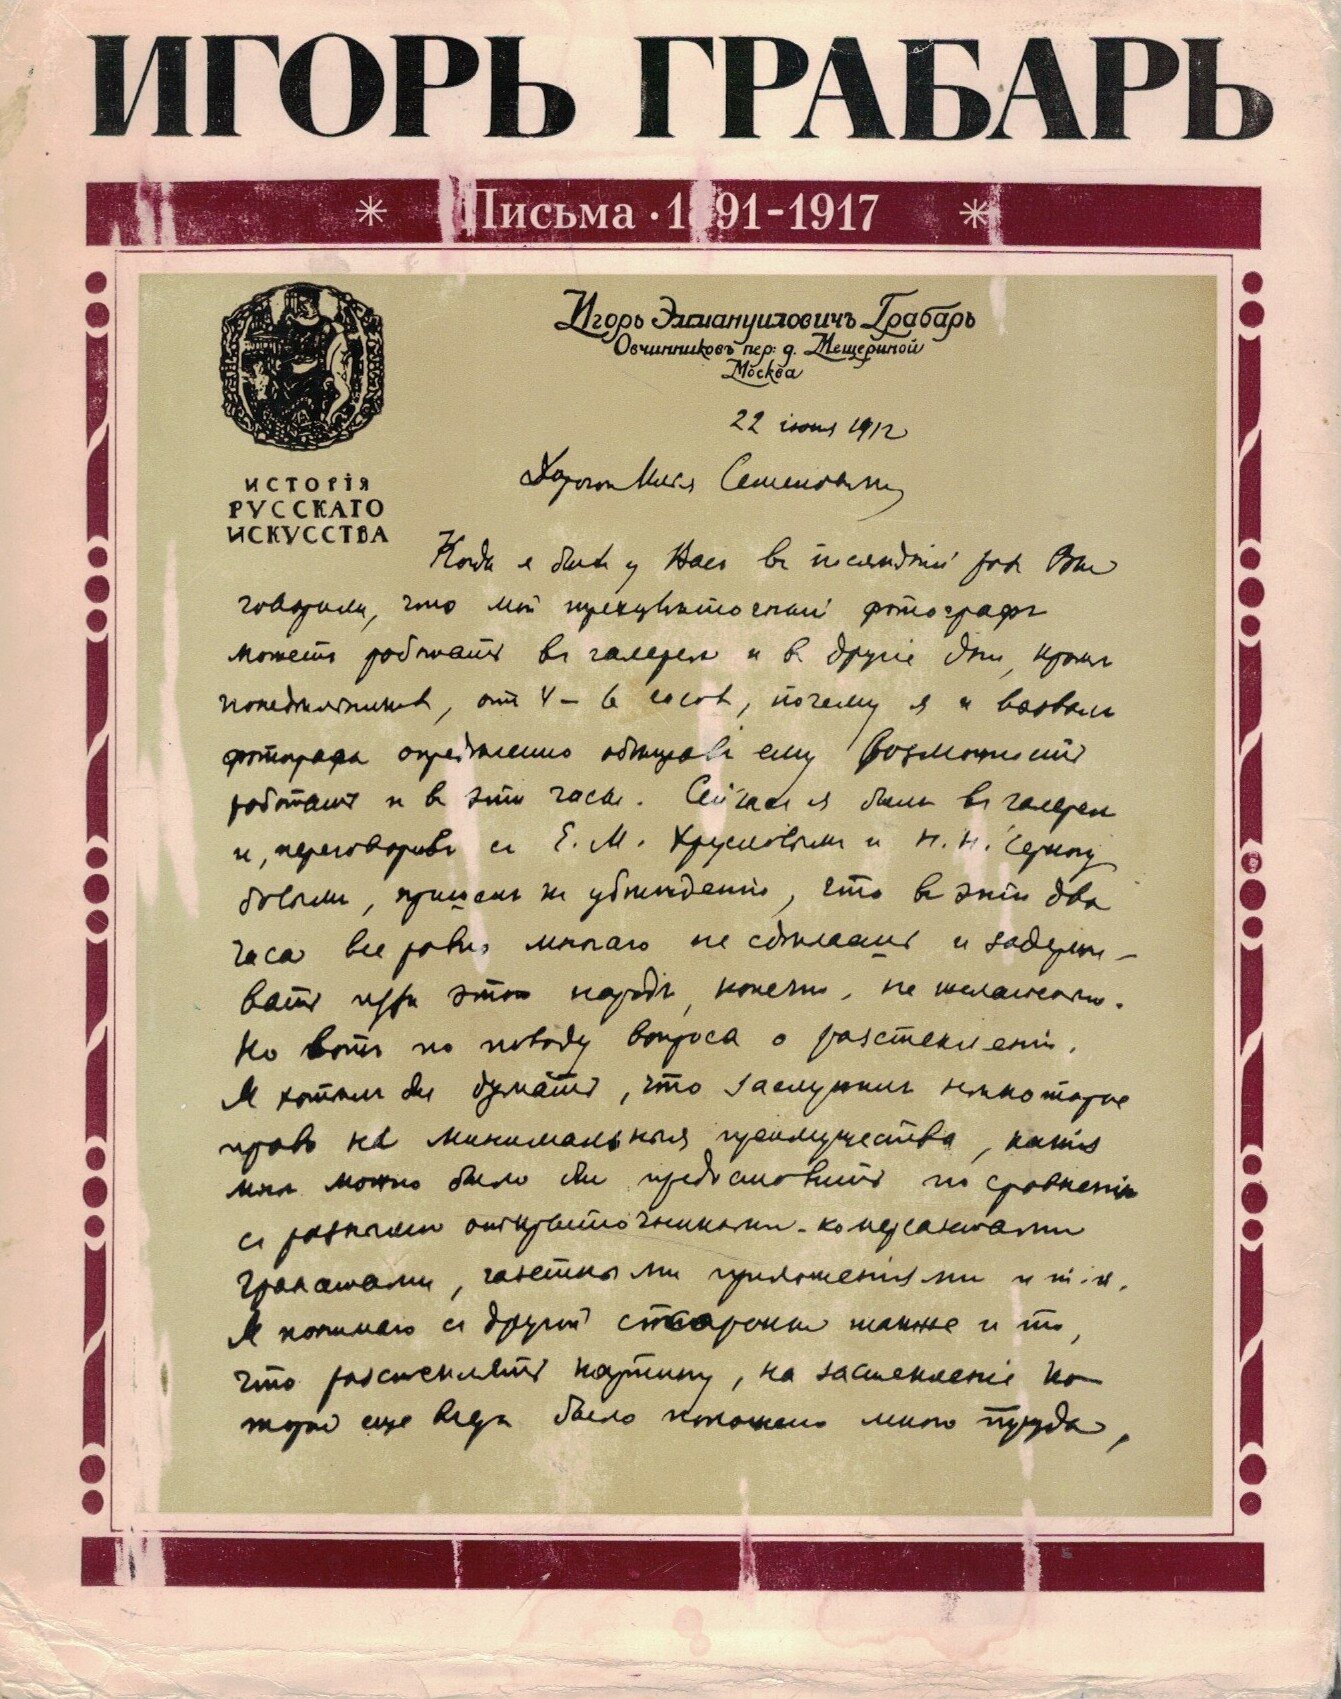 ИГОРЬ ГРАБАРЬ
* Письма · 1891-1917 *
Игорь Эммануиловичъ Грабарь
Овчинниковъ пер: д. Мещериной
Москва
ИСТОРІЯ
РУССКАГО
ИСКУССТВА
22 іюня 1912
Дорогой Илья Семеновичъ,
Когда я былъ у Васъ въ послѣдній разъ Вы
говорили, что мой фотографъ
можетъ работать въ галереѣ и въ другіе дни, кромѣ
понедѣльниковъ, отъ 4 – 6 часовъ, почему я и вызвалъ
фотографа опредѣленно обѣщавъ ему возможность
работать и въ эти часы. Сейчасъ я былъ въ галереѣ
и, переговоривъ съ Е. М. Хрусловымъ и Н. Н. Черно-
бовымъ, пришелъ къ убѣжденію, что въ эти два
часа все равно многаго не сдѣлаешь и задержи-
вать при этомъ народъ, конечно, не желательно.
Но вотъ по поводу вопроса о разстекленіи.
Я хотѣлъ бы думать, что заслужилъ нѣкоторое
право на минимальныя преимущества, какія
мнѣ можно было бы предоставить по сравненію
съ разными открыточниками-конкурентами
Гранатами, газетными приложеніями и т. п.
Я понимаю съ другой стороны также и то,
что разстеклять картину, на застекленіе ко-
торой еще вчера было положено много труда,